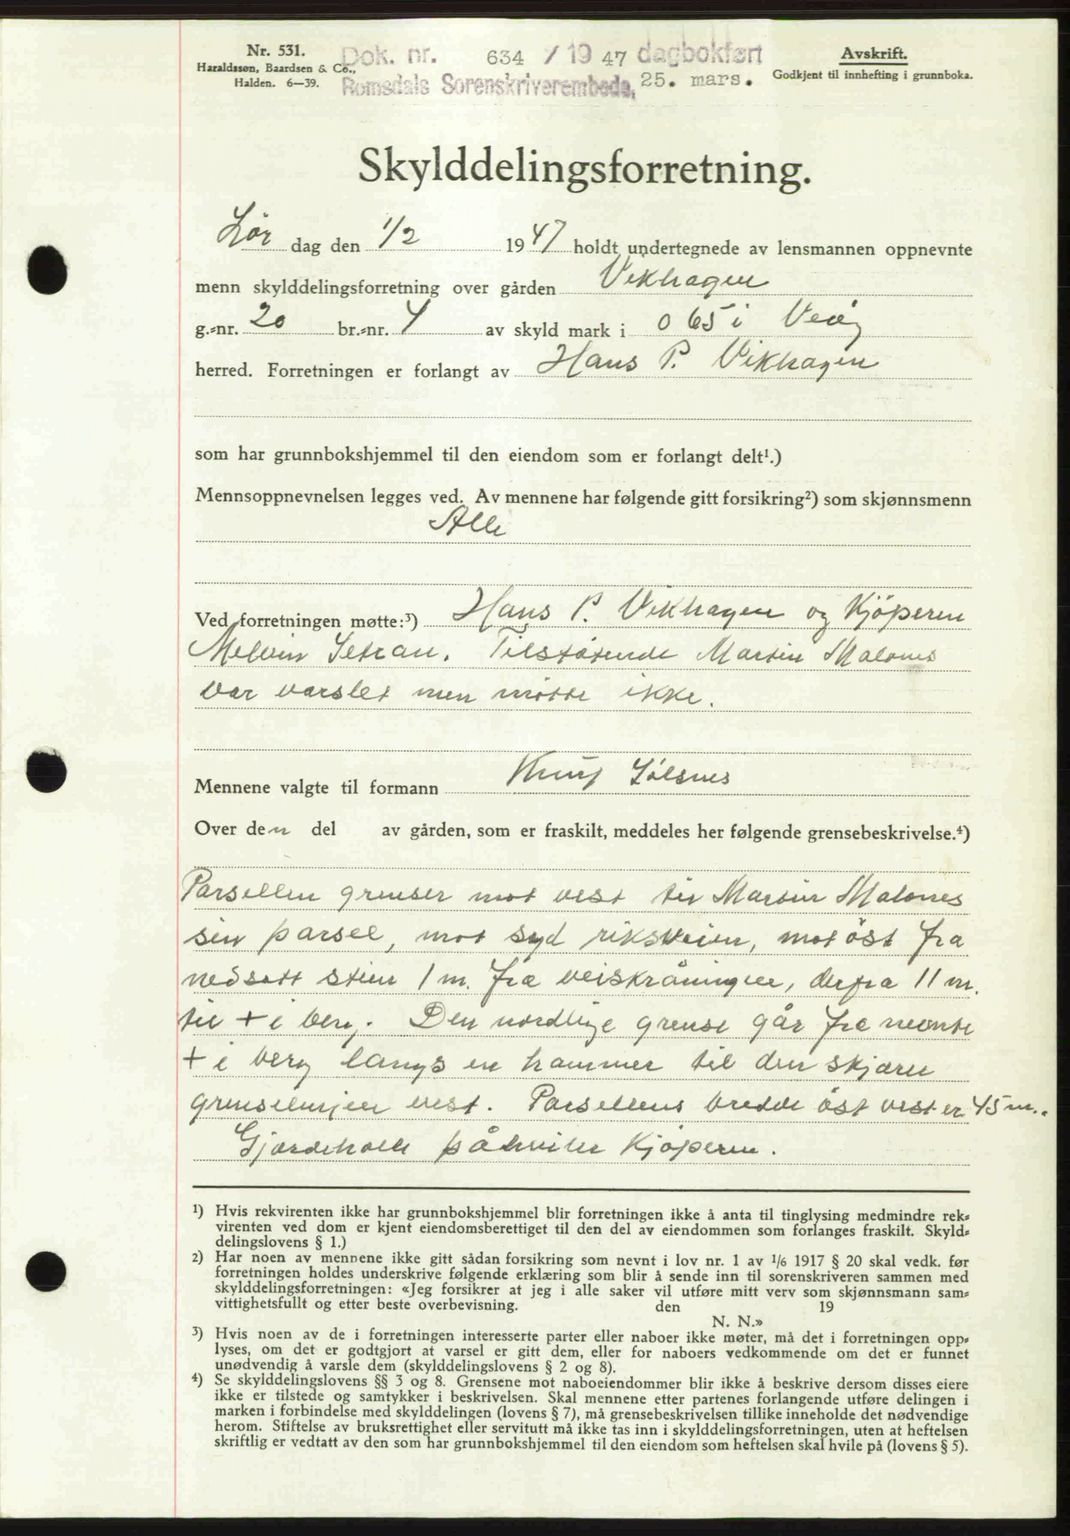 Nr. 531.
Haraldssøn, Baardsen & Co.,
Halden. 6—39.
Dok. nr. 634 / 19 47 dagbokført
Romsdals Sorenskriverembede, 25. mars.
Avskrift.
Godkjent til innhefting i grunnboka.
Skylddelingsforretning.
Lør dag den 1/2 1947 holdt undertegnede av lensmannen oppnevnte
menn skylddelingsforretning over gården Vikhagen
g.-nr. 20 br.-nr. 4 av skyld mark i 0 65 i Veøy
herred. Forretningen er forlangt av Hans P. Vikhagen
som har grunnbokshjemmel til den eiendom som er forlangt delt¹.)
Mennsoppnevnelsen legges ved. Av mennene har følgende gitt forsikring²) som skjønnsmenn
Alle
Ved forretningen møtte:³) Hans P. Vikhagen og Kjöperen
Melvin Setran. Tilstøtende Martin Malones
var varslet men møtte ikke.
Mennene valgte til formann Knut Sølsnes
Over den del av gården, som er fraskilt, meddeles her følgende grensebeskrivelse.⁴)
Parsellen grenser mot vest til Martin Malones
sin parsel, mot syd riksveien, mot öst fra
nedsatt stein 1 m. fra veiskråningen, derfra 11 m.
til + i berg. Den nordlige grense går fra nevnte
+ i berg langs en hammer til den skjærer
grenselinjen vest. Parsellens bredde öst vest er 45 m.
Gjerdehold påhviler Kjöperen.
¹) Hvis rekvirenten ikke har grunnbokshjemmel blir forretningen ikke å anta til tinglysing medmindre rek-
virenten ved dom er kjent eiendomsberettiget til den del av eiendommen som forlanges fraskilt. Skyld-
delingslovens § 1.)
²) Har noen av mennene ikke gitt sådan forsikring som nevnt i lov nr. 1 av 1/6 1917 § 20 skal vedk. før
forretningen holdes underskrive følgende erklæring som blir å sende inn til sorenskriveren sammen med
skylddelingsforretningen: «Jeg forsikrer at jeg i alle saker vil utføre mitt verv som skjønnsmann sam-
vittighetsfullt og etter beste overbevisning. den 19
N. N.»
³) Hvis noen av de i forretningen interesserte parter eller naboer ikke møter, må det i forretningen opp-
lyses, om det er godtgjort at varsel er gitt dem, eller for naboers vedkommende om det er funnet
unødvendig å varsle dem (skylddelingslovens § 2 og 8).
⁴) Se skylddelingslovens §§ 3 og 8. Grensene mot naboeiendommer blir ikke å beskrive dersom disses eiere
ikke er tilstede og samtykker i beskrivelsen. Skal mennene etter partenes forlangende utføre delingen i
marken i forbindelse med skylddelingen (lovens § 7), må grensebeskrivelsen tillike inneholde det nødvendige
herom. Stiftelse av bruksrettighet eller servitutt må ikke tas inn i skylddelingsforretningen, uten at heftelsen
skriftlig er vedtatt av den som har grunnbokshjemmel til den eiendom som heftelsen skal hvile på (lovens § 5).